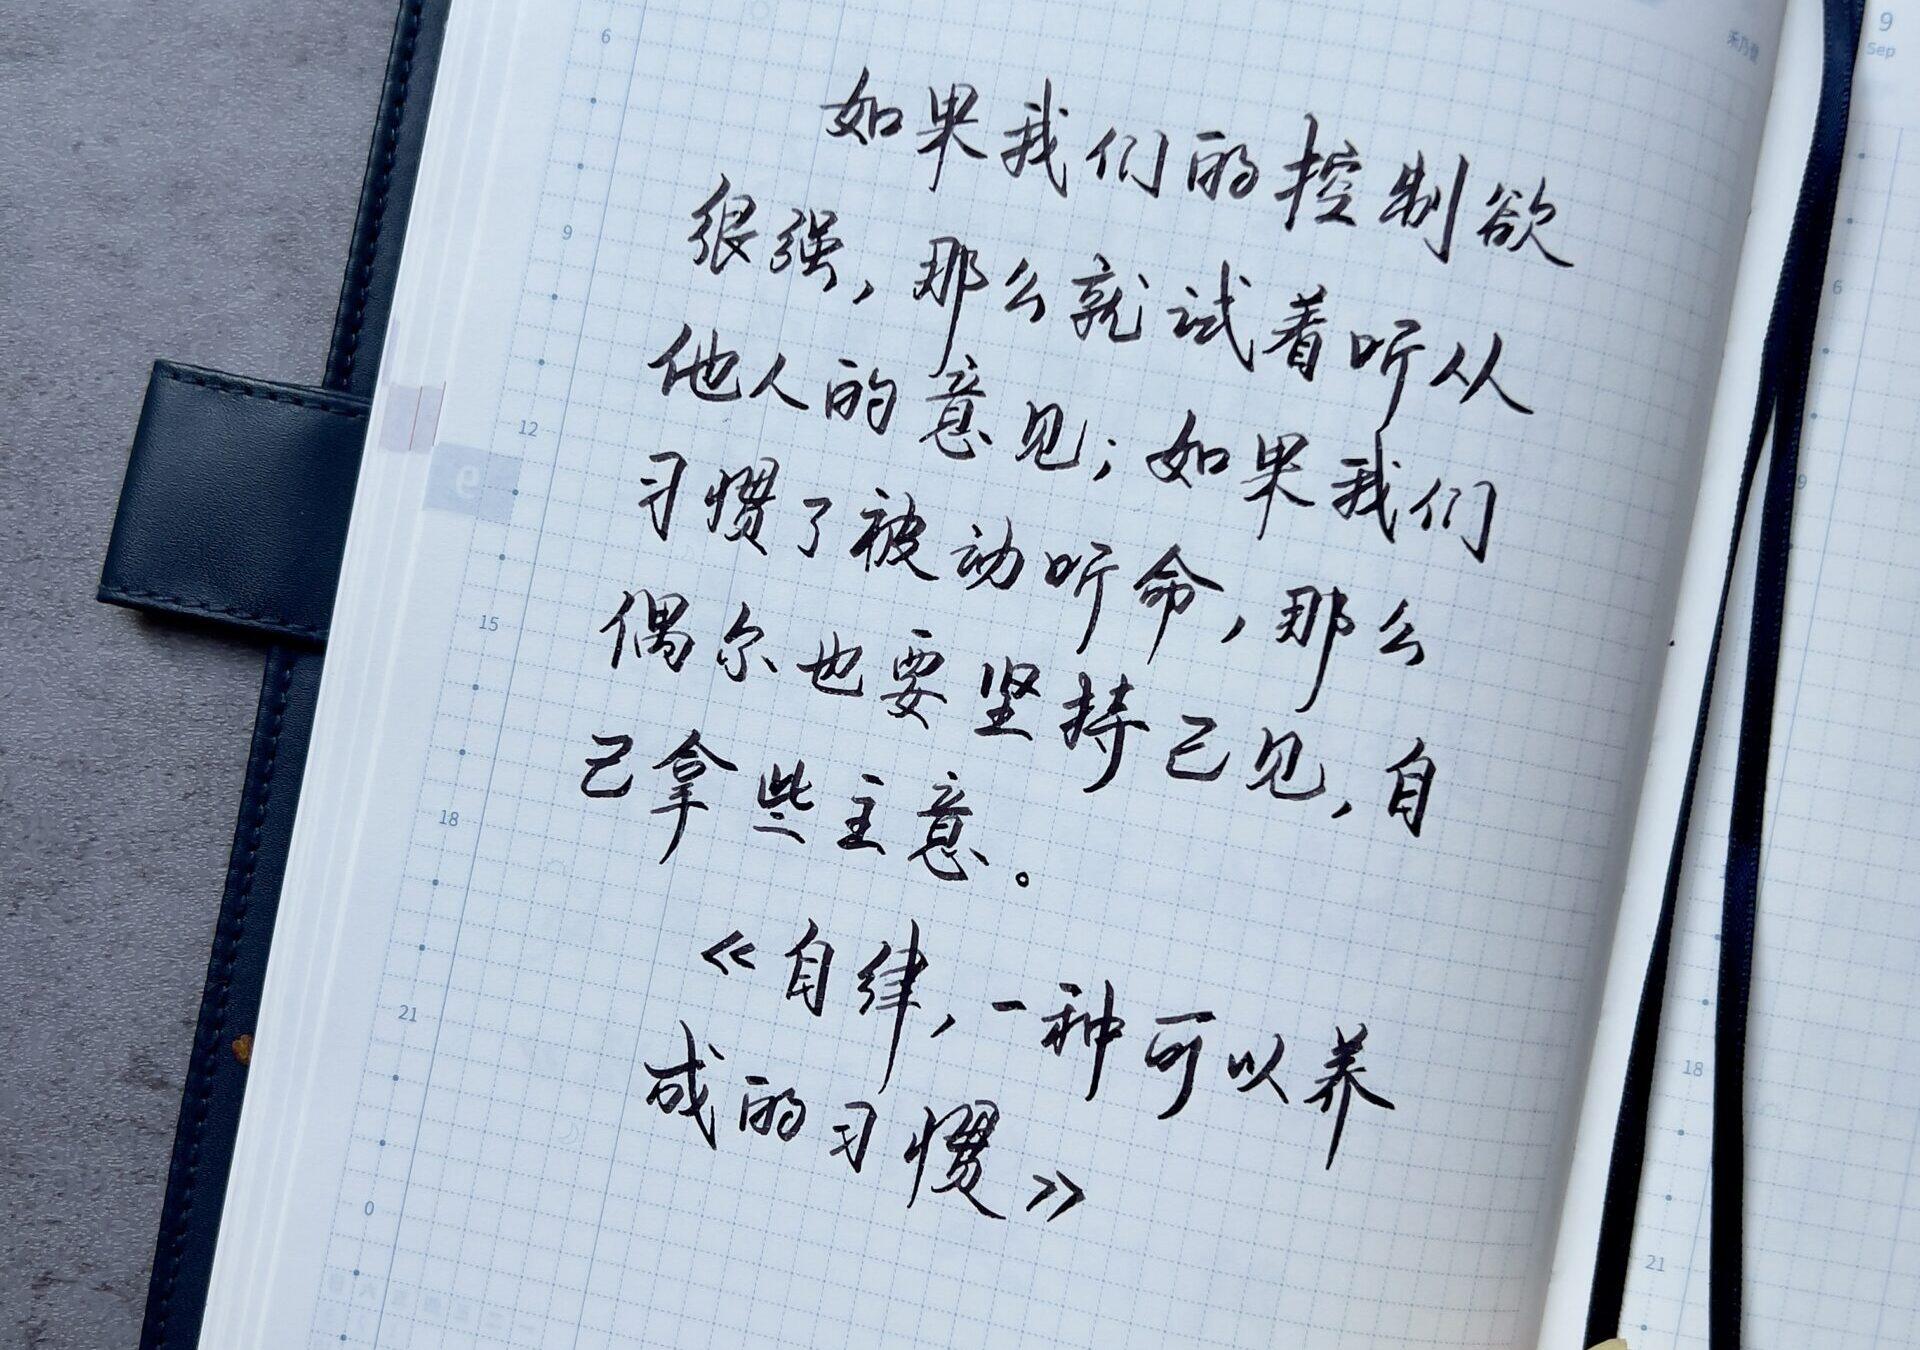 如果我们的控制欲
很强，那么就试着听从
他人的意见；如果我们
习惯了被动听命，那么
偶尔也要坚持己见，自
己拿些主意。
《自律，一种可以养
成的习惯》
6
9
12
15
18
21
0
9
Sep
6
9
18
21